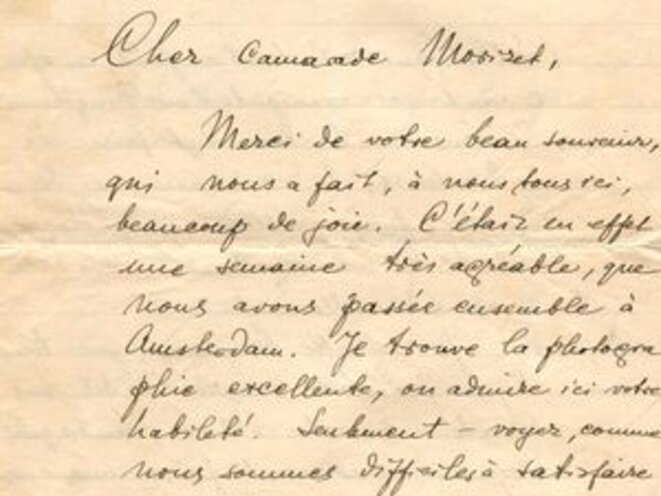 Cher Camarade Morizet,
Merci de votre beau souvenir,
qui nous a fait, à nous tous ici,
beaucoup de joie. C'était en effet
une semaine très agréable, que
nous avons passée ensemble à
Amsterdam. Je trouve la photogra
phie excellente, on admire ici votre
habileté. Seulement – voyez, comme
nous sommes difficiles à satisfaire